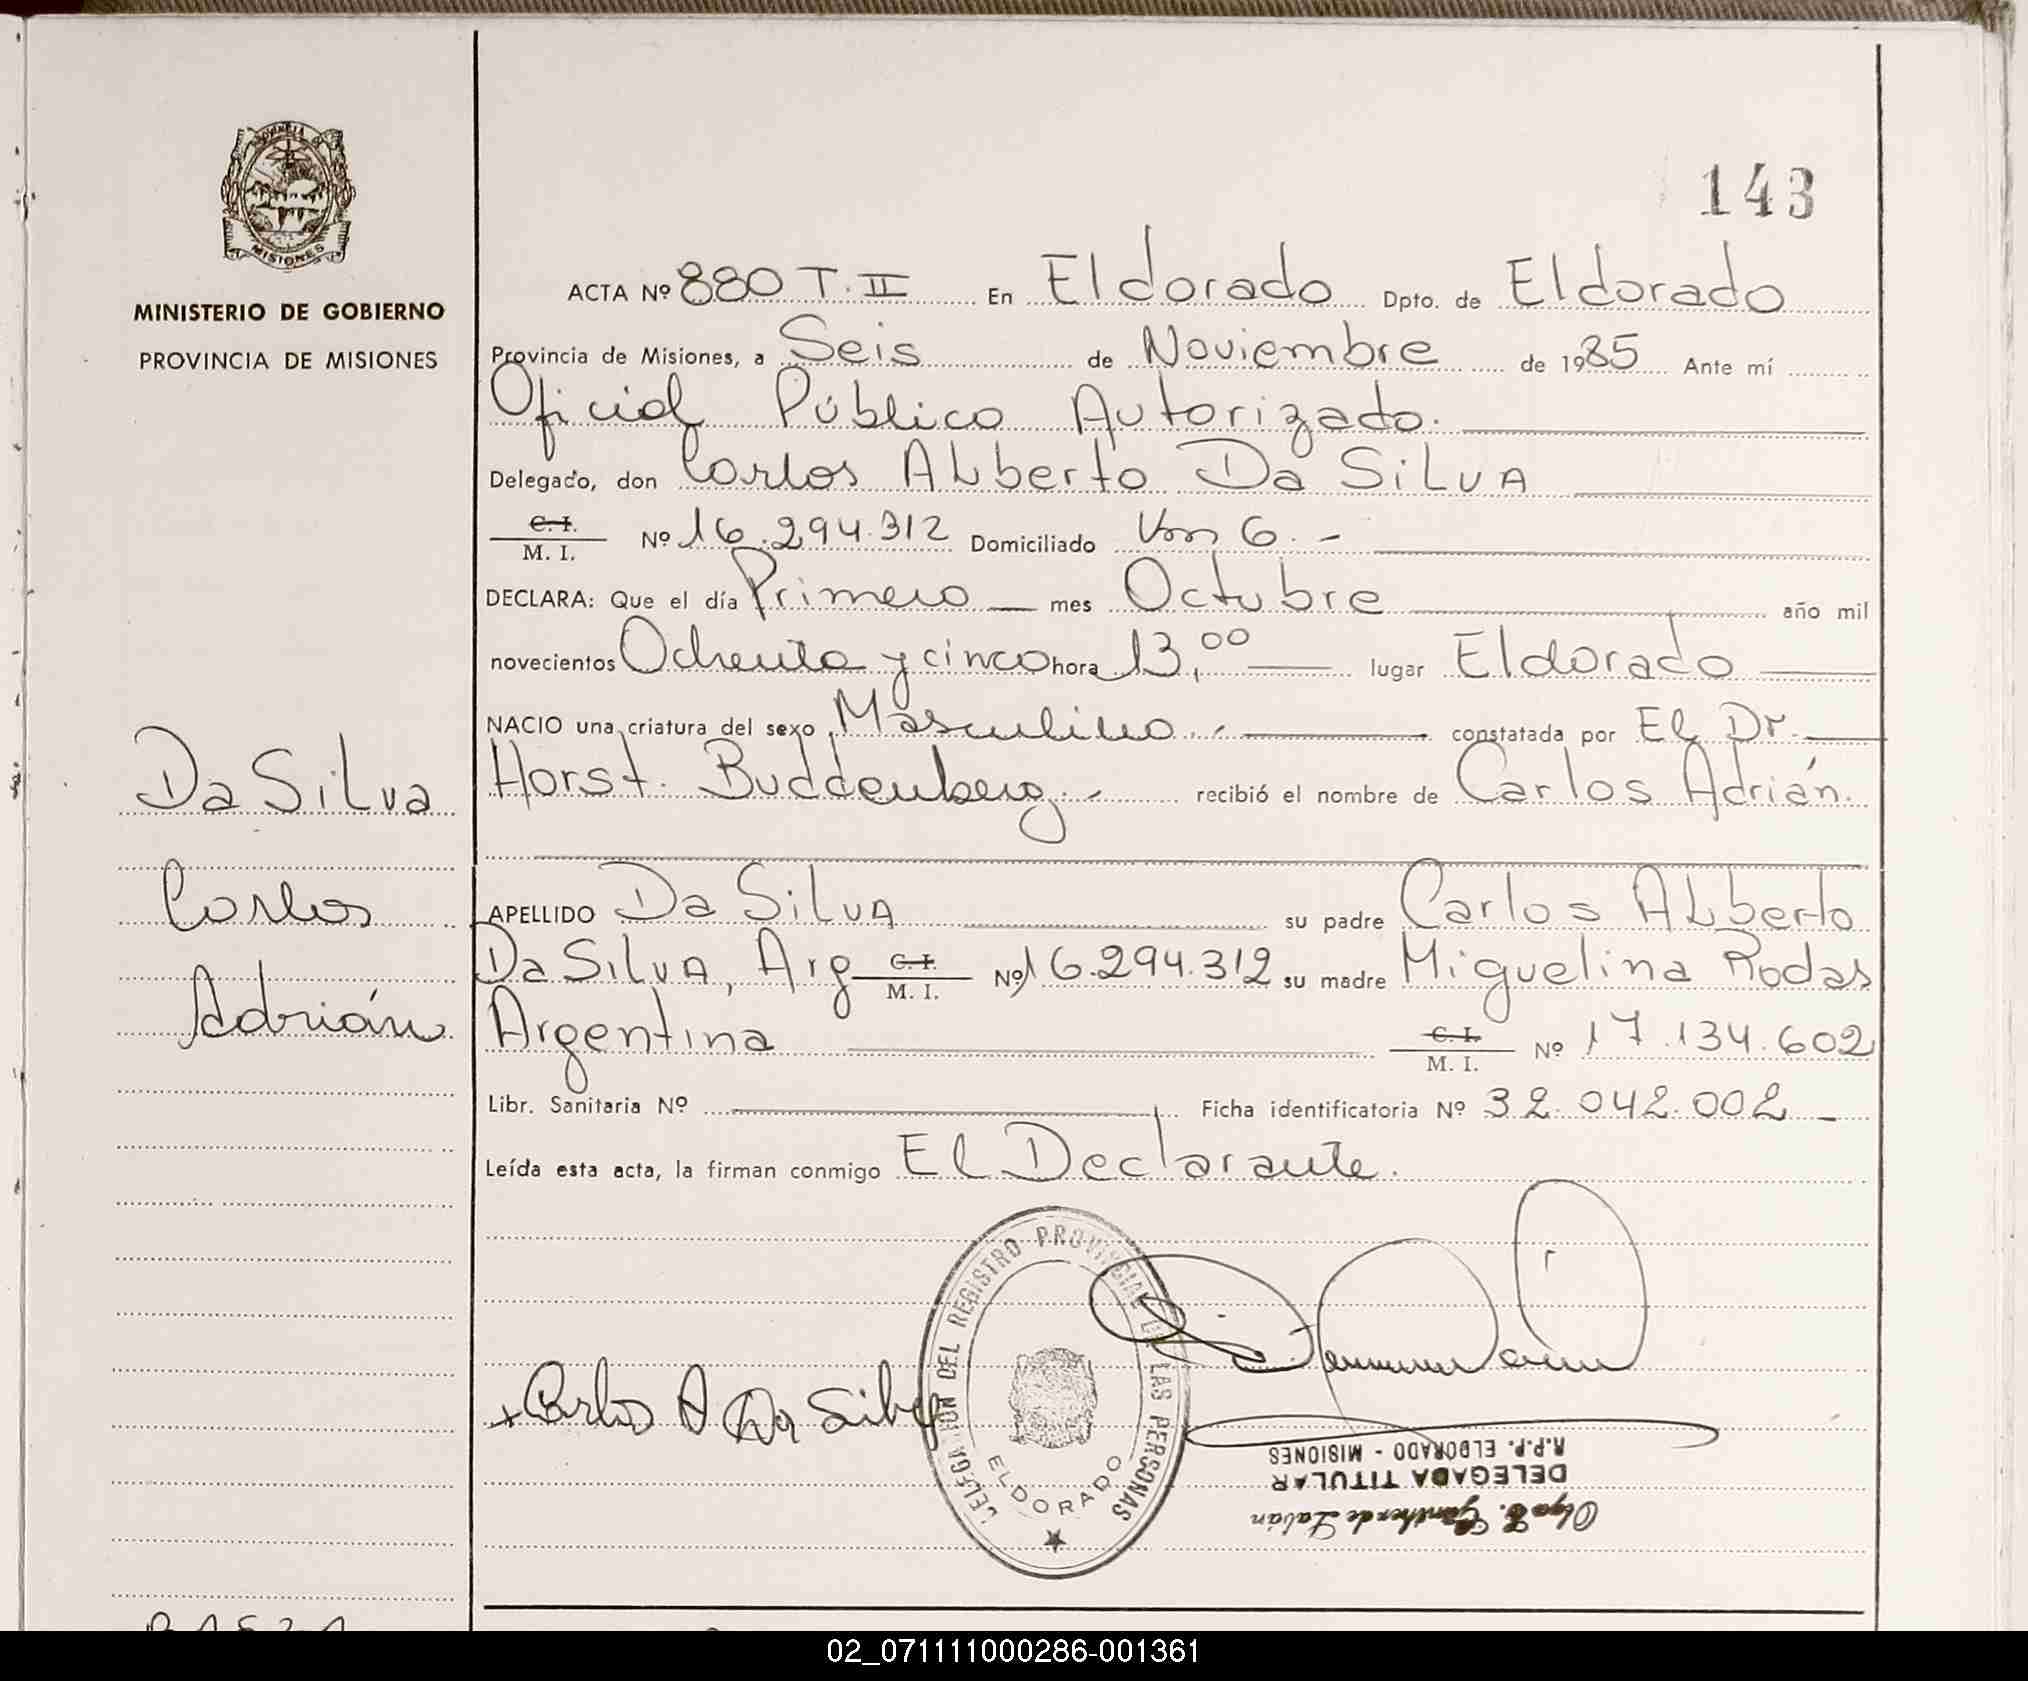 143
MINISTERIO DE GOBIERNO
PROVINCIA DE MISIONES
ACTA Nº 880 T. II En Eldorado Dpto. de Eldorado
Provincia de Misiones, a Seis de Noviembre de 1985 Ante mí
Oficial Público Autorizado.
Delegado, don Carlos Alberto Da Silva
C. I. / M. I. Nº 16.294.312 Domiciliado Km 6. -
DECLARA: Que el día Primero mes Octubre año mil
novecientos Ochenta y cinco hora 13,00 lugar Eldorado
NACIO una criatura del sexo Masculino.- constatada por El Dr.
Horst. Buddenberg.- recibió el nombre de Carlos Adrián.
APELLIDO Da Silva su padre Carlos Alberto
Da Silva, Arg C. I. / M. I. Nº 16.294.312 su madre Miguelina Rodas
Argentina C. I. / M. I. Nº 17.134.602
Libr. Sanitaria Nº Ficha identificatoria Nº 32.042.002
Leída esta acta, la firman conmigo El Declarante.
Da Silva
Carlos
Adrián
Carlos A Da Silva
DELEGACION DEL REGISTRO PROVINCIAL DE LAS PERSONAS
ELDORADO
R.P.P. ELDORADO - MISIONES
DELEGADA TITULAR
MISIONES
02_071111000286-001361